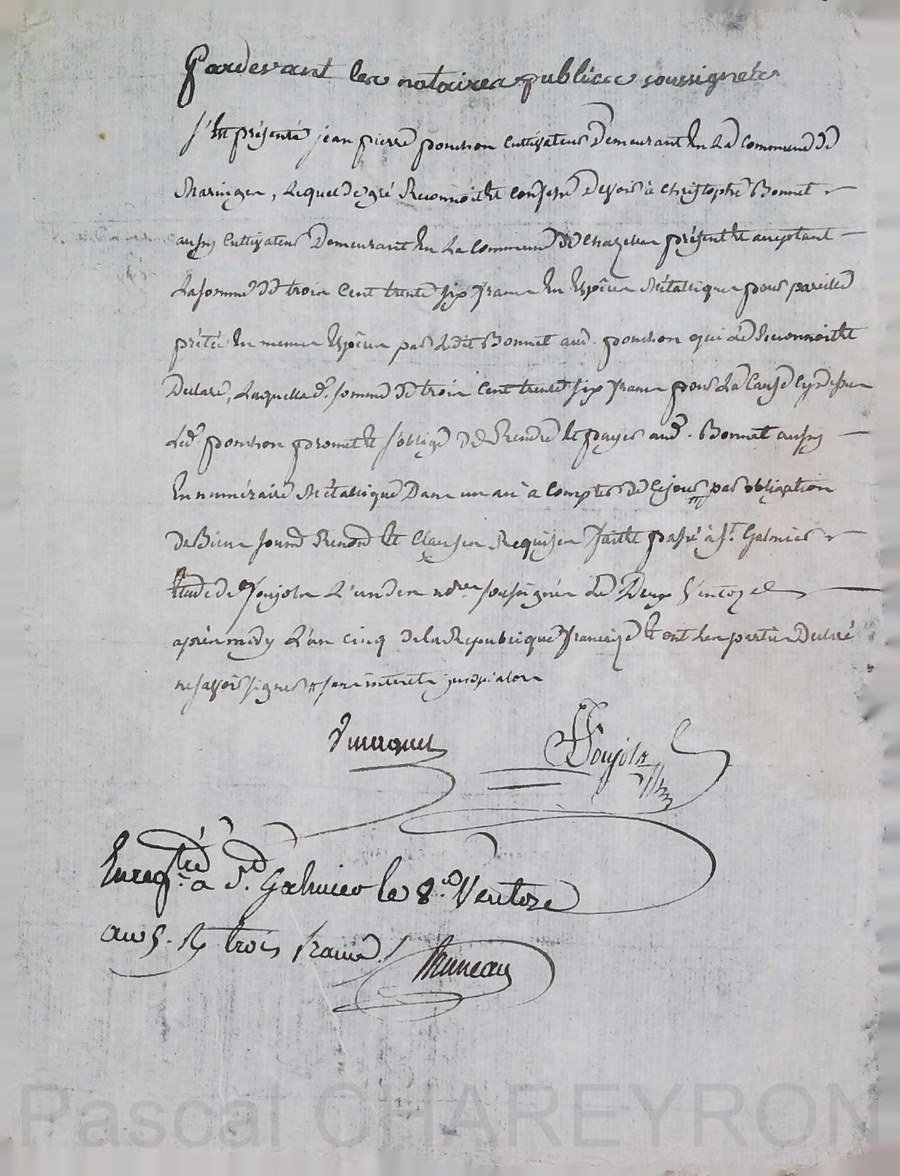 Pardevant les notaires publics soussignés
s'est présenté jean pierre ponchon Cultivateur Demeurant En La Commune de
Maringes, Lequel de gré Reconnoit et confesse Devoir à Christophe Bonnet
aussy Cultivateur Demeurant En La Commune de Chazelles présent et acceptant
La somme de trois Cent trente six francs En Espèces Métallique pour pareille
prétée En memes Espèces par Ledit Bonnet aud. ponchon qui Le Reconnoit et
Declare, Laquelle d. somme de trois Cent trente six francs pour La Cause Cy dessus
Led. ponchon promet et s'oblige de Rendre et payer aud. Bonnet aussy
En numéraire Métallique Dans un an à Compter de Ce jour par obligation
De Biens soumis Renond et Clauses Requises fait et passé à St. Galmier
Etude de Poujols L'un des nores soussignés Le Deux Ventoze
après midy L'an cinq de La Republique française et ont Les parties Declaré
ne savoir signer et sans interets jusqu'alors
Poujols
Enregtré à St. Galmier le 8. Ventose
an 5. R trois francs
Pascal CHAREYRON